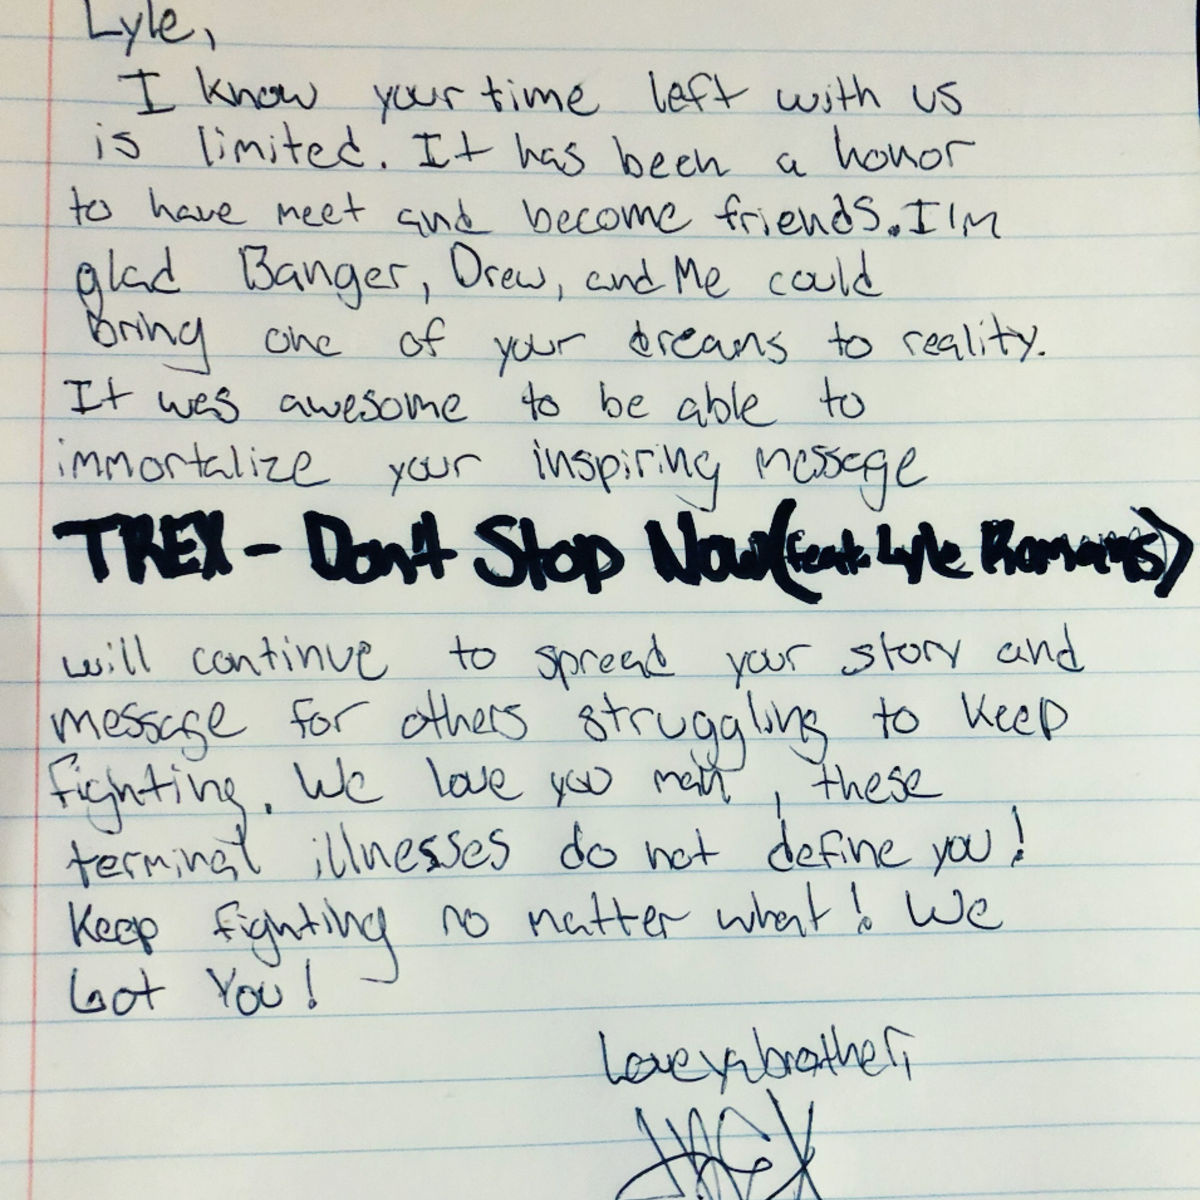 Lyle,
I know your time left with us
is limited. It has been a honor
to have meet and become friends. I'm
glad Banger, Drew, and Me could
bring one of your dreams to reality.
It was awesome to be able to
immortalize your inspiring message
TREX - Don't Stop Now (feat. Lyle Romans)
will continue to spread your story and
message for others struggling to keep
fighting. We love you man, these
terminal illnesses do not define you!
Keep fighting no matter what! We
Got You!
Love ya brother,